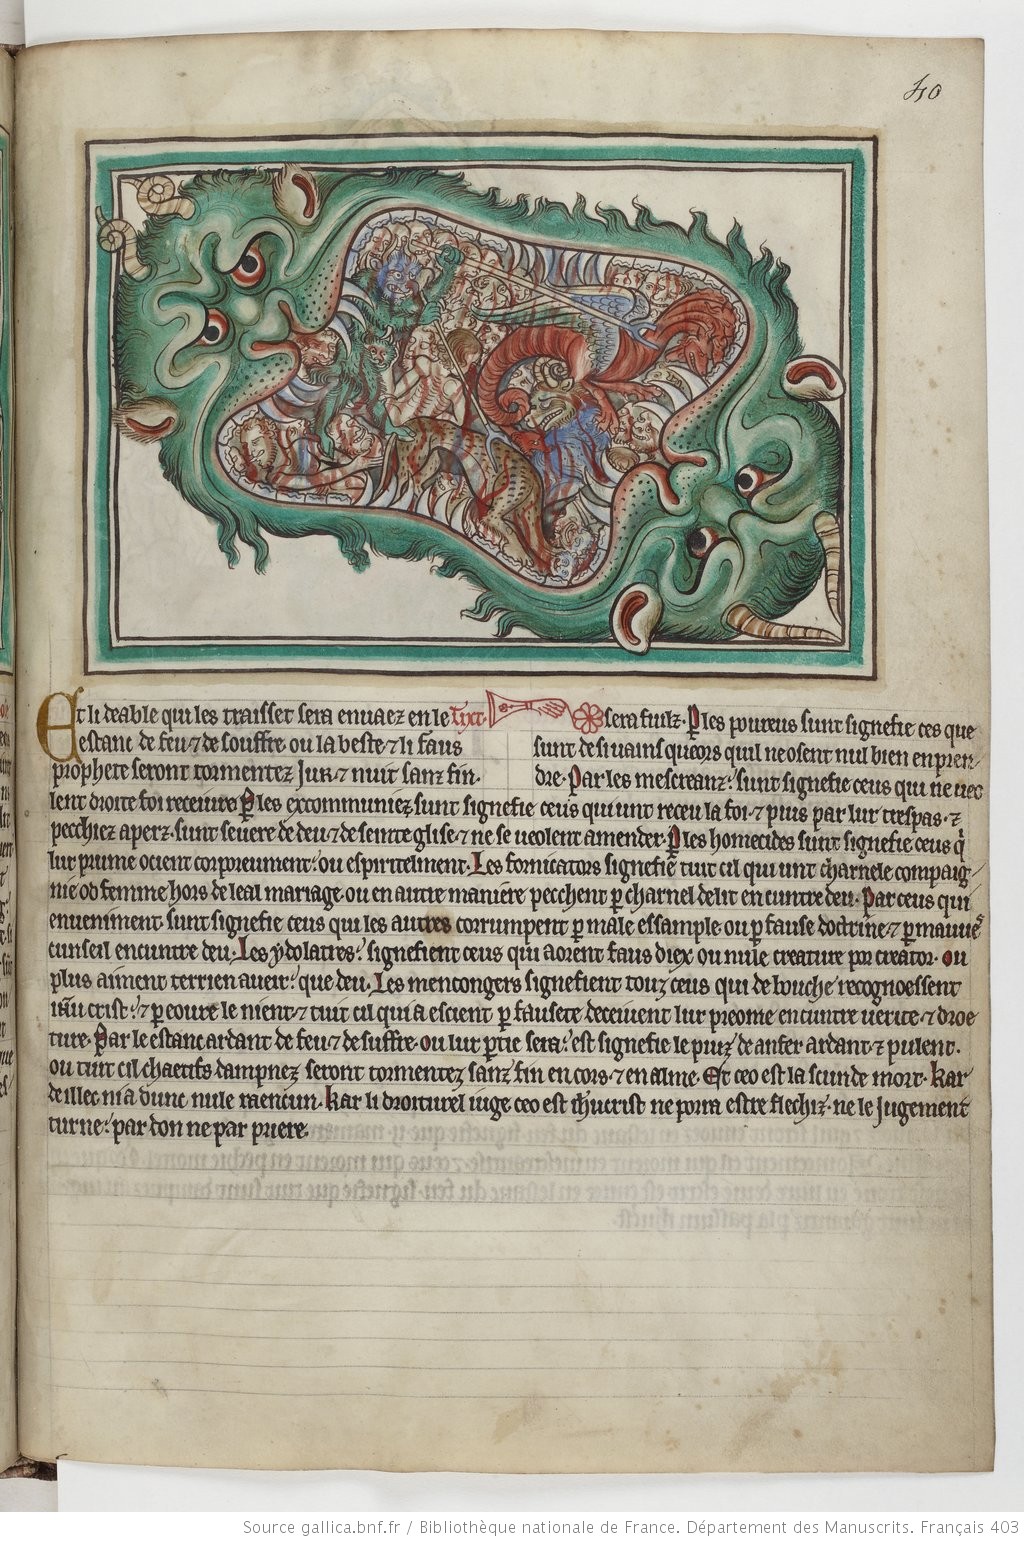 40
Et li deable qui les traisseit sera enuaez en le Text. sera fuilz. P les poureus sunt signefie ces que
estanc de feu ⁊ de souffre ou la beste ⁊ li faus sunt de si uains queors quil ne osent nul bien en pren-
prophete seront tormentez Jur ⁊ nuit sanz fin. dre. Par les mescreanz: sunt signefie ceus qui ne ueo
lent droite foi receiure P les excommuniez sunt signefie ceus qui unt receu la foi ⁊ puis par lur trespas ⁊
pecchiez aperz sunt seuere de deu ⁊ de seinte glise ⁊ ne se ueolent amender. P les homecides sunt signefie ceus q
lur prume ocient corpreument: ou espiritelment. Les fornicators signefie tuit cil qui unt charnele compaig-
nie ob femme hors de leal mariage ou en autre maniere pecchent p charnel delit encuntre deu. Par ceus qui
enueniment sunt signefie ceus qui les autres corrumpent p male essample ou p fause doctrine ⁊ p mauues
cunseil encuntre deu. Les ydolatres: signefient ceus qui aorent faus diex ou nule creature por creator. ou
plus aiment terrien aueir: que deu. Les mencongers signefient touz ceus qui de bouche recognoessent
ihu crist: ⁊ p eoure le nient ⁊ tuit cil qui a escient p fausete deceiuent lur preome encuntre uerite ⁊ droe
ture. Par le estanc ardant de feu ⁊ de suffre. ou lur ptie sera: est signefie le puiz de anfer ardant ⁊ pulent.
ou tuit cil chaetifs dampnez seront tormentez sanz fin en cors ⁊ en alme. Et ceo est la scunde mort. Kar
de illec ni a dunc nule raencun. Kar li droiturel iuge ceo est ihucrist ne porra estre flechiz. ne le Jugement
turne: par don ne par priere.
Source gallica.bnf.fr / Bibliothèque nationale de France. Département des Manuscrits. Français 403